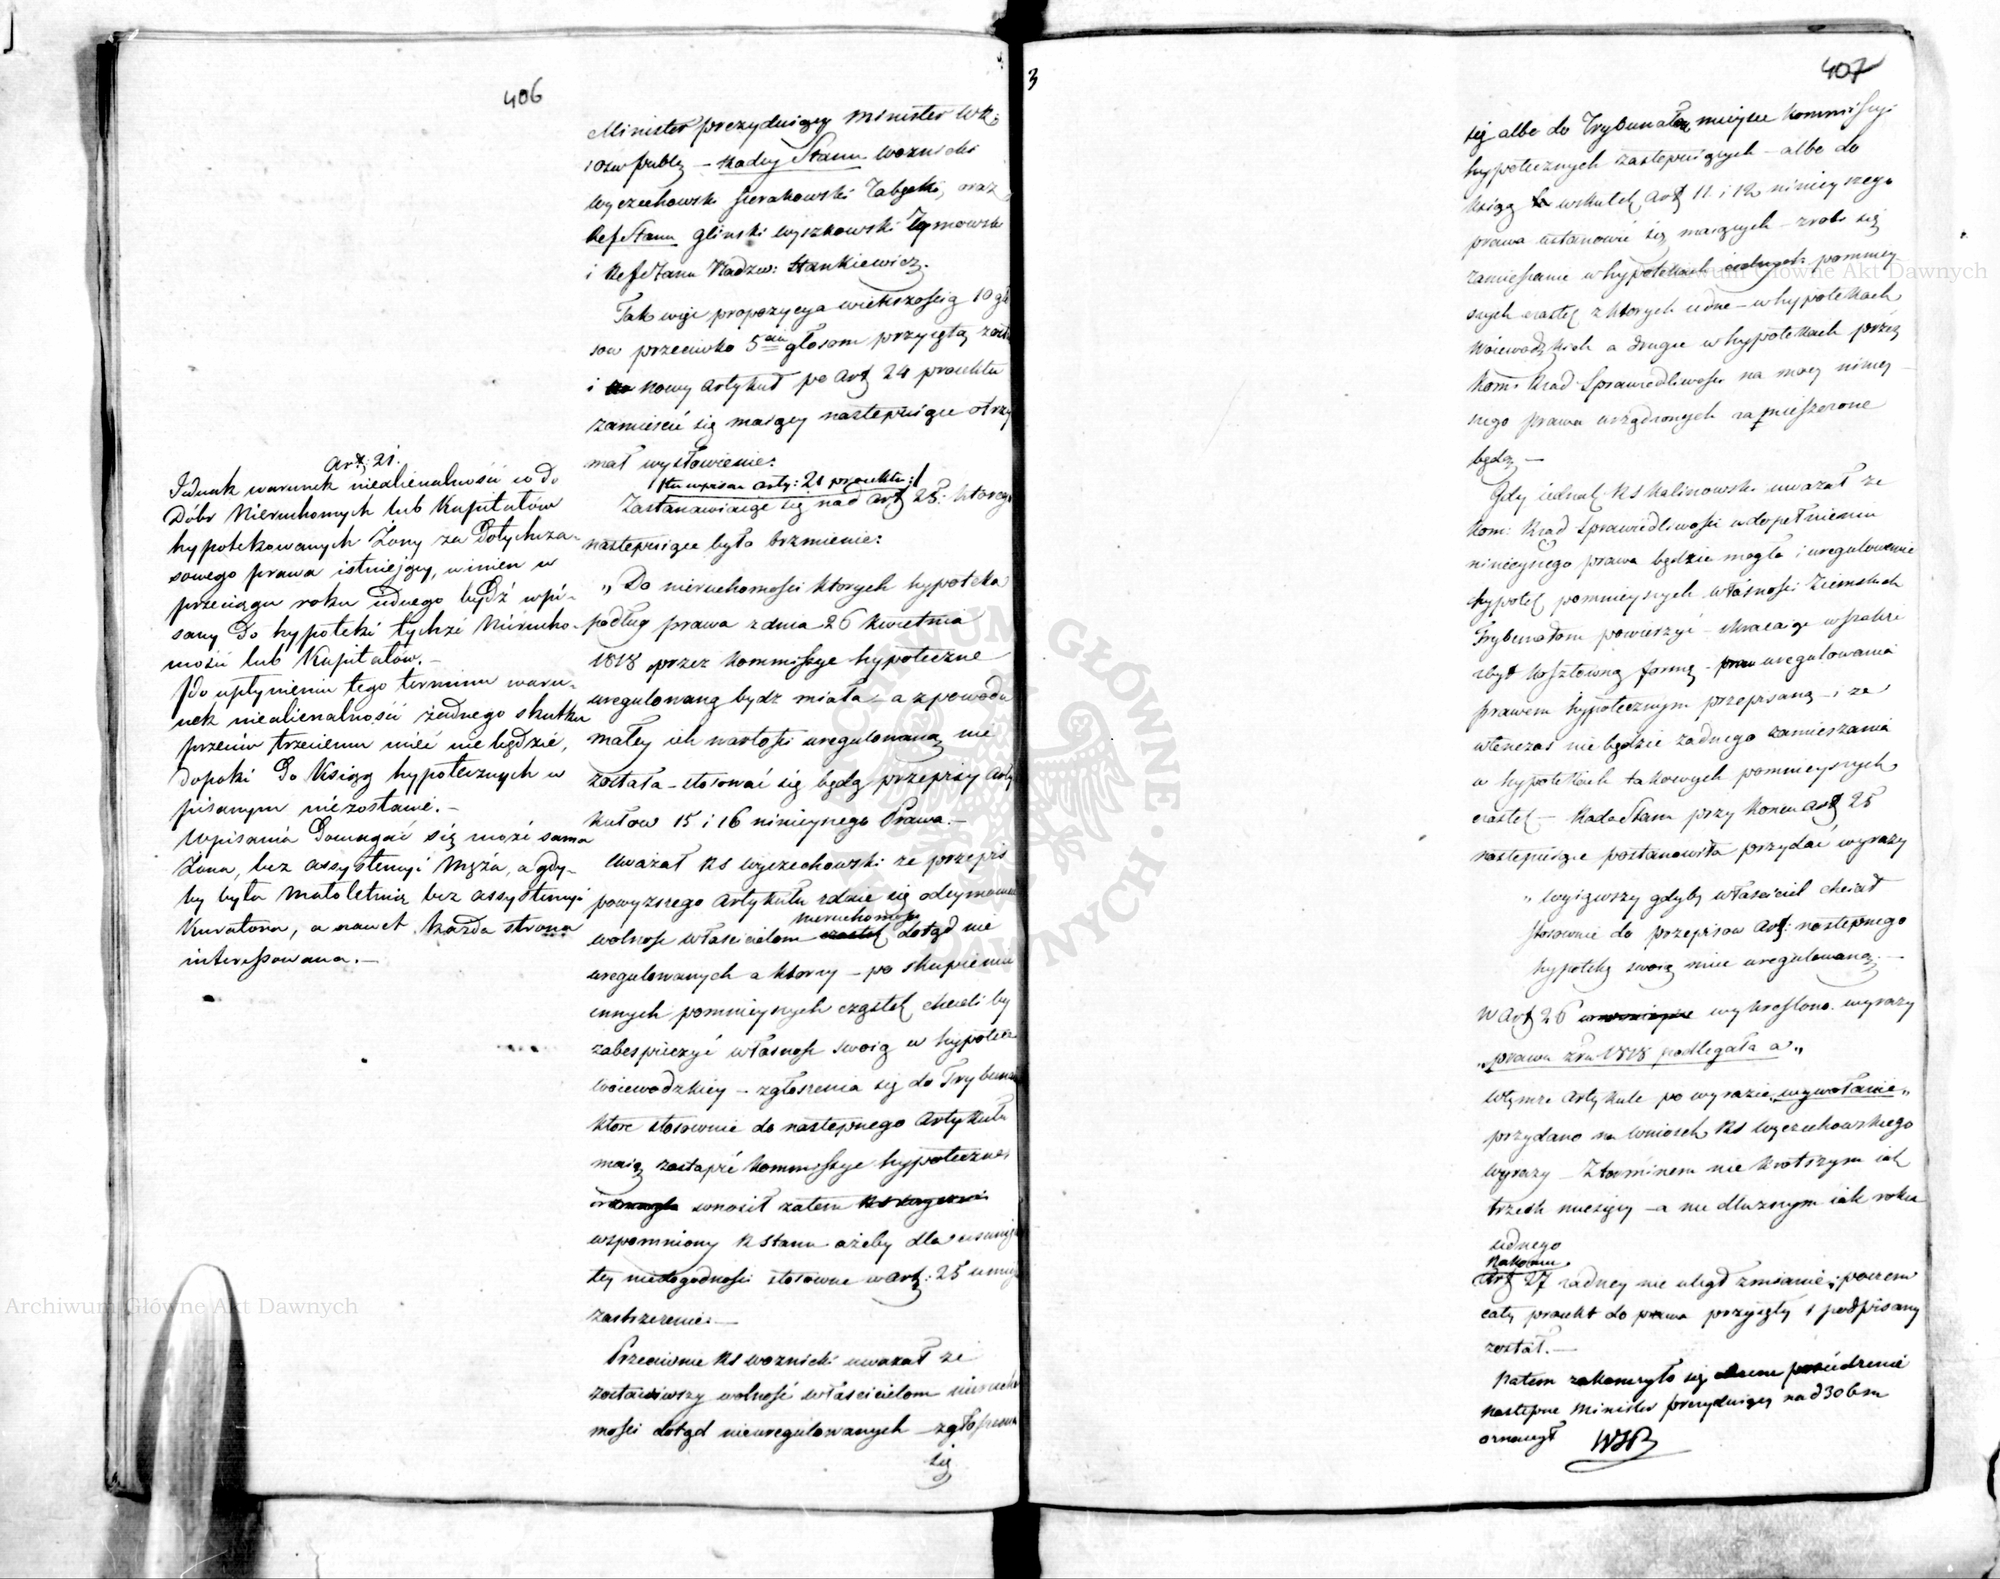 406
Minister prezyduiący Minister WR:
i Ośw publ – Radcy Stanu Woznicki
Wyczechowski Sierakowski Tabęcki, oraz
Ref Stanu Gliński Wyszkowski Tymowski
i Ref Stanu Nadzw: Stankiewicz.
Tak więc propozycya większością 10 gło
sow przeciwko 5ciu głosom przyięta zosta
i nowy Artykuł po Art 24 proiektu
zamieścić się maiący następuiące otrzy
mał wysłowienie:
/: tu wpisać arty: 21 proiektu :/
Zastanawiaiąc się nad Art 25: ktorego
następuiące było brzmienie:
„Do nieruchomości ktorych hypoteka
podług prawa z dnia 26 Kwietnia
1818 przez Kommissye hypoteczne
uregulowaną bydz miała – a z powodu
małey ich wartości uregulowaną nie
została – stosować się będą przepisy Arty
kułow 15 i 16 ninieyszego Prawa. –
Uważał RS Wyczechowski że przepis
powyższego Artykułu zdaie się odeymować
wolność właścicielom nieruchomości dotąd nie
uregulowanych a ktorzy – po skupieniu
innych pomnieyszych cząstek chcieli by
zabespieczyć własność swoią w hypotece
Woiewodzkiey – zgłoszenia się do Trybuna
ktore stosownie do następnego Artykułu
maią zastąpić Kommissye hypoteczne;
wnosił zatem
wspomniony R Stanu ażeby dla usunię
tey niedogodności stosowne w Art: 25 umieś
zastrzeżenie. –
Przeciwnie RS Woznicki uważał że
zostawiwszy wolność właścicielom nierucho
mości dotąd nieuregulowanych – zgłoszenia
się
Art: 21.
Jednak warunek niealienalności co do
Dóbr Nieruchomych lub Kapitałów
hypotekowanych Żony za Dotychcza-
sowego prawa istnieiący, winien w
przeciągu roku iednego bydź wpi-
sany do hypoteki tychże Nierucho-
mości lub Kapitałów. –
Po upłynieniu tego terminu waru-
nek niealienalności żadnego skutku
przeciw trzeciemu mieć nie będzie,
dopóki do Xiąg hypotecznych w
pisanym niezostanie. –
Wpisania Domagać się może sama
Żona, bez assystencyi Męża, a gdy-
by była Małoletnią bez assystencyi
Kuratora, a nawet każda strona
interessowana. –
3
407
się albo do Trybunałow mieysce Kommissyi
hypotecznych zastępuiących – albo do
Xiąg wskutek Art 11. i 12 ninieyszego
prawa ustanowić się maiących – zrobi się
zamieszanie w hypotekach pomniey
szych cząstek z ktorych iedne – w hypotekach
Woiewodzkich a drugie w hypotekach przez
Kom: Rząd Sprawiedliwości na mocy niniey
szego prawa urządzonych zamieszczone
będą –
Gdy iednak RS Kalinowski uważał że
Kom: Rząd Sprawiedliwości w dopełnieniu
ninieyszego prawa będzie mogła i uregulowanie
hypotek pomnieyszych własności Ziemskich
Trybunałom powierzyć – skracaiąc w prawie
zbyt kosztowną formę uregulowania
prawem hypotecznym przepisaną – i że
wtenczas nie będzie żadnego zamieszania
w hypotekach takowych pomnieyszych
cząstek – Rada Stanu przy końcu Art 25
następuiące postanowiła przydać wyrazy
„wyiąwszy gdyby właściciel chciał
stosownie do przepisow Art: następnego
hypotekę swoią mieć uregulowaną. –
W Art 26 wykreślono wyrazy
„prawa z ru 1818 podlegała a„
W tymże Artykule po wyrazie „wywołanie„
przydano na wniosek RS Wyczechowskiego
wyrazy – Z terminem nie krotszym iak
trzech miesięcy – a nie dłuższym iak roku
iednego
Nakoniec
Art 27 żadney nie uległ zmianie; poczem
cały proiekt do prawa przyięty i podpisany
został. –
Zatem zakończyło się posiedzenie
następne Minister prezyduiący na d 30 bm
oznaczył